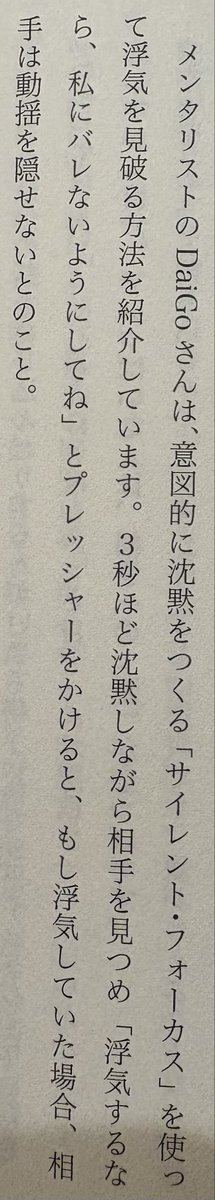 メンタリストのDaiGoさんは、意図的に沈黙をつくる「サイレント・フォーカス」を使っ
て浮気を見破る方法を紹介しています。3秒ほど沈黙しながら相手を見つめ「浮気するな
ら、私にバレないようにしてね」とプレッシャーをかけると、もし浮気していた場合、相
手は動揺を隠せないとのこと。